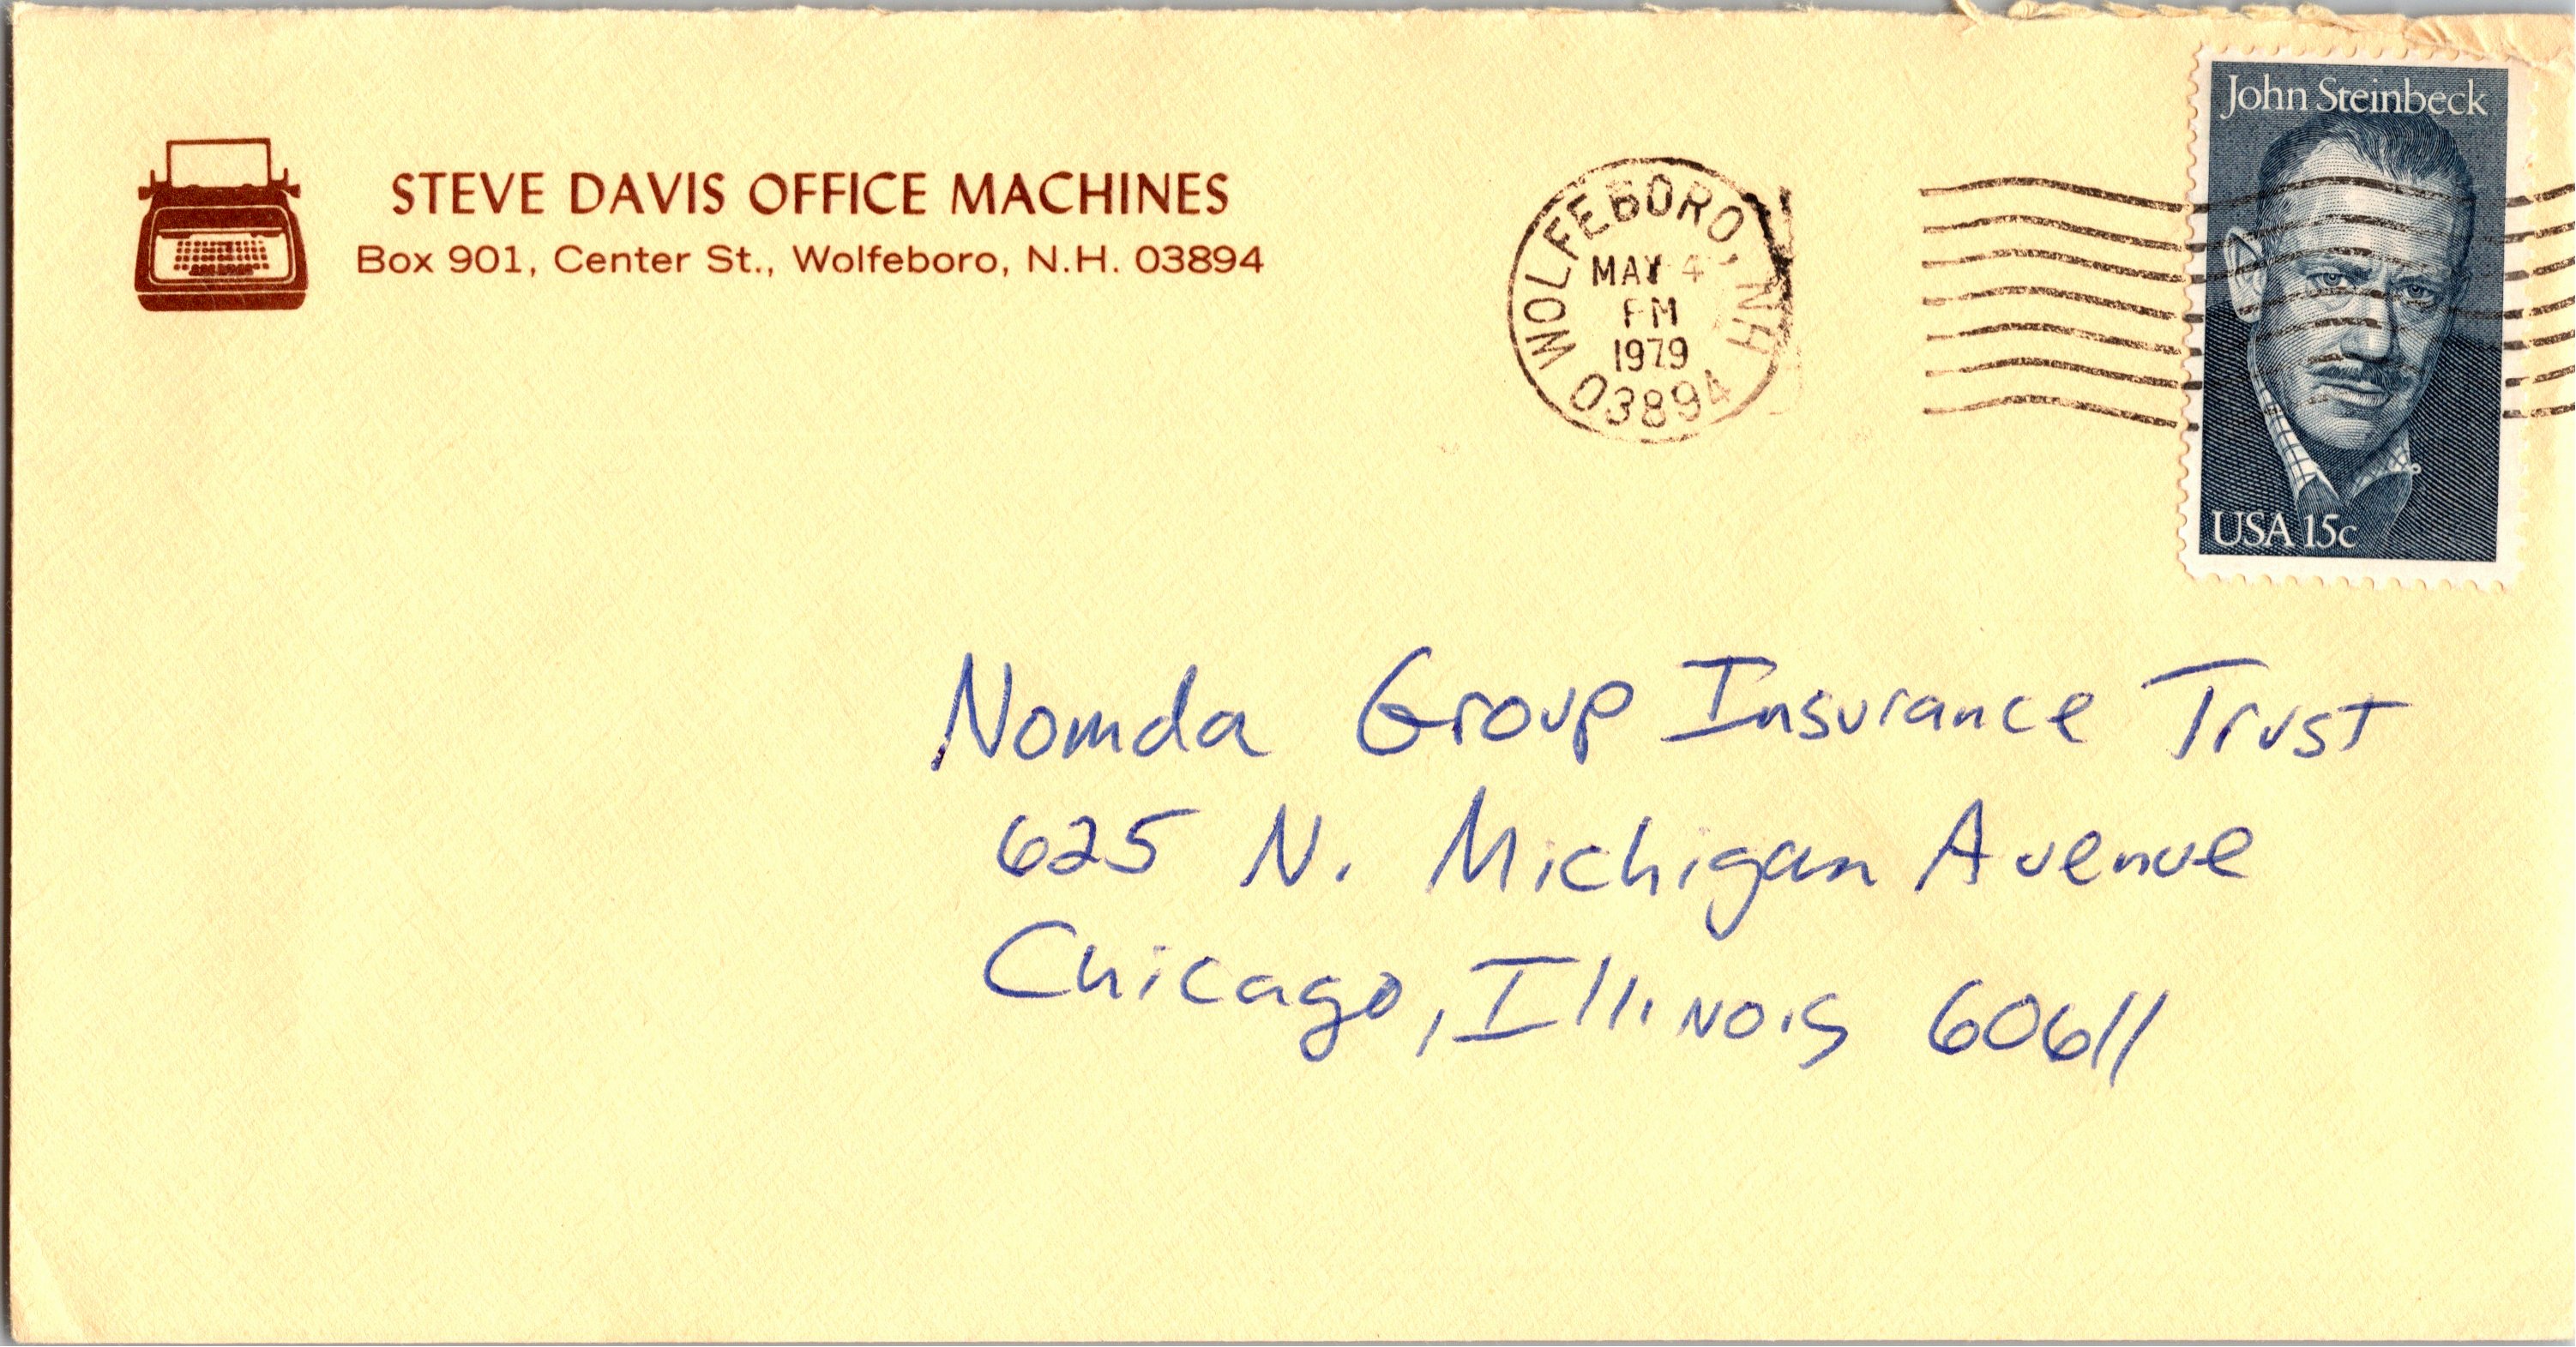 STEVE DAVIS OFFICE MACHINES
Box 901, Center St., Wolfeboro, N.H. 03894
WOLFEBORO, NH
MAY 4
PM
1979
03894
John Steinbeck
USA 15c
Nomda Group Insurance Trust
625 N. Michigan Avenue
Chicago, Illinois 60611